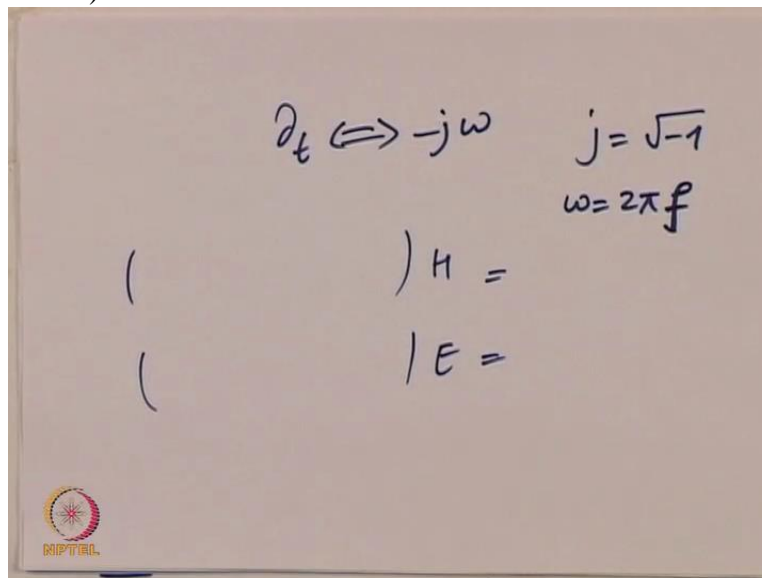 )
∂ₜ ⟺ -jω j = √-1
ω = 2πf
( ) H =
( ) E =
NPTEL